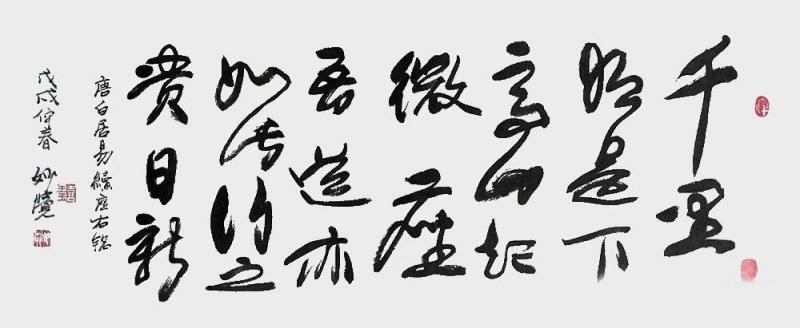 千里
始足下
高山起
微塵
吾道亦
如此行之
貴日新
唐白居易續座右銘
戊戌仲春 妙